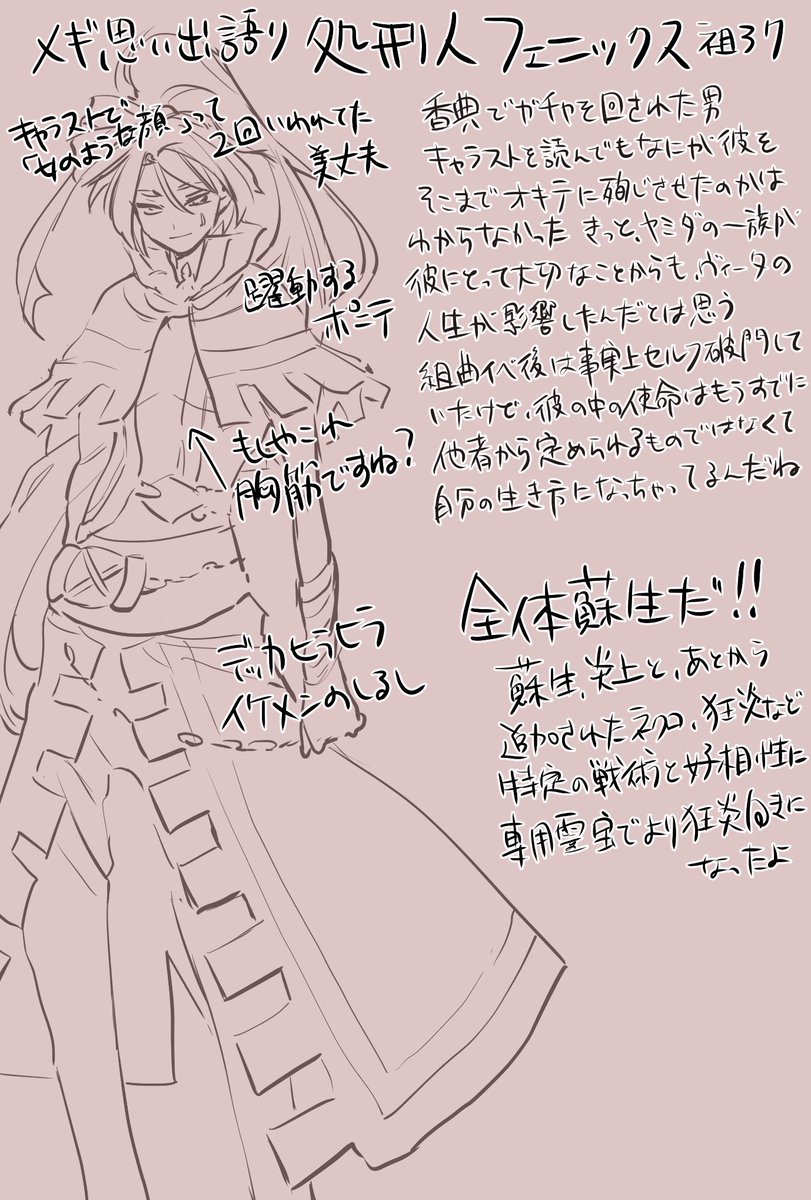 メギ思い出語り 処刑人 フェニックス 祖37
キャラストで
「女のような顔」って
2回いわれてた
美丈夫
香典でガチャを回された男
キャラストを読んでもなにが彼を
そこまでオキテに殉じさせたのかは
わからなかった きっと、ヤミダの一族が
彼にとって大切なことからも、ヴィータの
人生が影響したんだとは思う
組曲イベ後は事実上セルフ破門して
いたけど、彼の中の使命はもうすでに
他者から定められるものではなくて
自分の生き方になっちゃってるんだね
躍動する
ポニテ
もしやこれ
胸筋ですね?
デッカヒラヒラ
イケメンのしるし
全体蘇生だ!!
蘇生、炎上と、あとから
追加されたネクロ、狂炎など
特定の戦術と好相性に
専用霊宝でより狂炎向きに
なったよ